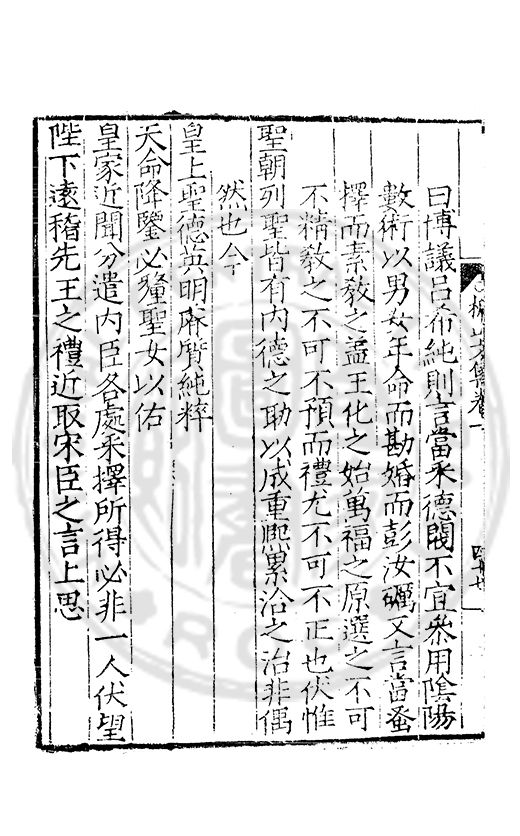 曰博議呂希純則言當采德閥不宜叅用隂陽
數術以男女年命而勘婚而彭汝礪又言當蚤
擇而素敎之盖王化之始萬福之原選之不可
不精敎之不可不預而禮尤不可不正也伏惟
聖朝列聖皆有内德之助以成重熈累洽之治非偶
然也今
皇上聖德英明睿質純粹
天命降鑒必鍾聖女以佑
皇家近聞分遣内臣各處采擇所得必非一人伏望
陛下逺稽先王之禮近取宋臣之言上思